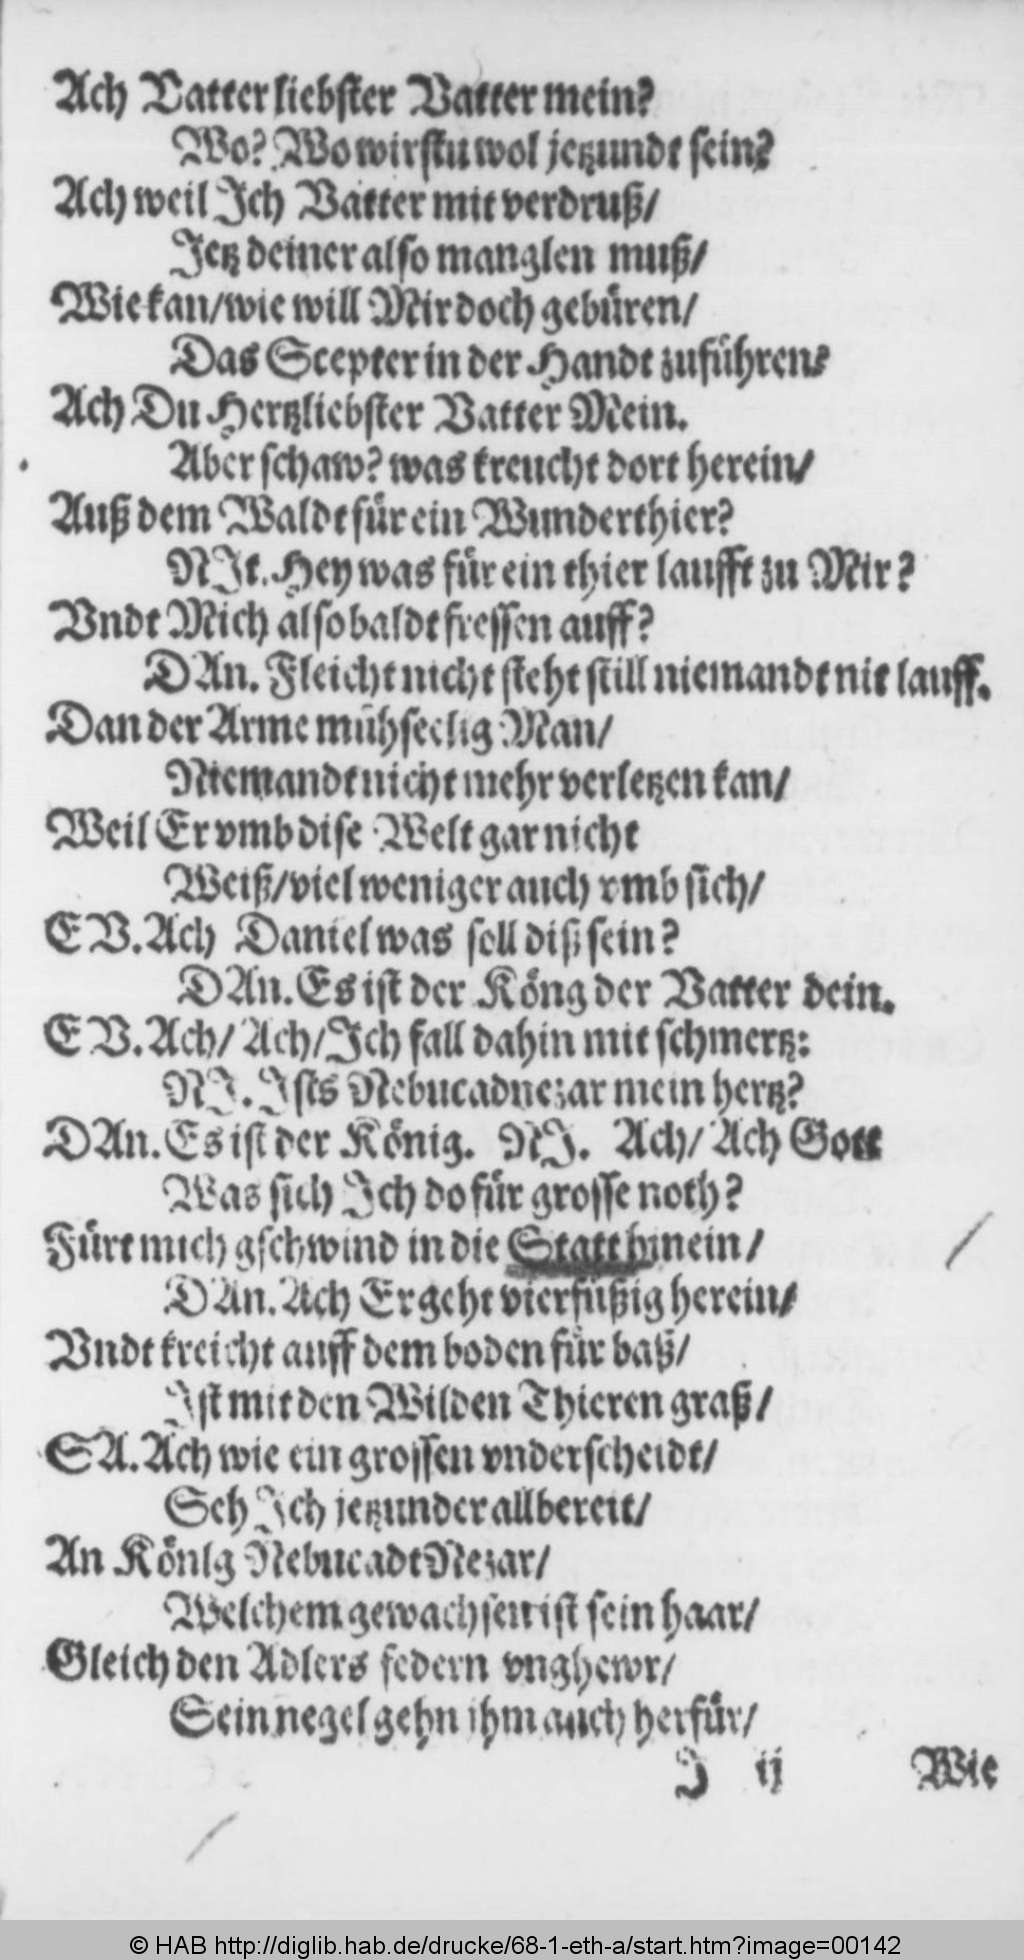 Ach Vatter liebster Vatter mein?
Wo? Wo wirstu wol jetzundt sein?
Ach weil Ich Vatter mit verdruß/
Jetz deiner also manglen muß/
Wie kan/wie will Mir doch gebüren/
Das Scepter in der Handt zuführen?
Ach Du Hertzliebster Vatter Mein.
Aber schaw? was kreucht dort herein/
Auß dem Waldt für ein Wunderthier?
NIt. Hey was für ein thier laufft zu Mir?
Vndt Mich alsobaldt fressen auff?
DAn. Fleicht nicht steht still niemandt nit lauff.
Dan der Arme mühseelig Man/
Niemandt nicht mehr verletzen kan/
Weil Er vmb dise Welt gar nicht
Weiß/viel weniger auch vmb sich/
EV. Ach Daniel was soll diß sein?
DAn. Es ist der Köng der Vatter dein.
EV. Ach/ Ach/Ich fall dahin mit schmertz:
NI. Ists Nebucadnezar mein hertz?
DAn. Es ist der König. NI. Ach/ Ach Gott
Was sich Ich do für grosse noth?
Fürt mich gschwind in die Statt hinein/
DAn. Ach Er geht vierfüßig herein/
Vndt kreicht auff dem boden für baß/
Ist mit den Wilden Thieren graß/
SA. Ach wie ein grossen vnderscheidt/
Seh Ich jetzunder allbereit/
An Könlg NebucadtNezar/
Welchem gewachsen ist sein haar/
Gleich den Adlers federn vnghewr/
Sein negel gehn ihm auch herfür/
I ij Wie
© HAB http://diglib.hab.de/drucke/68-1-eth-a/start.htm?image=00142